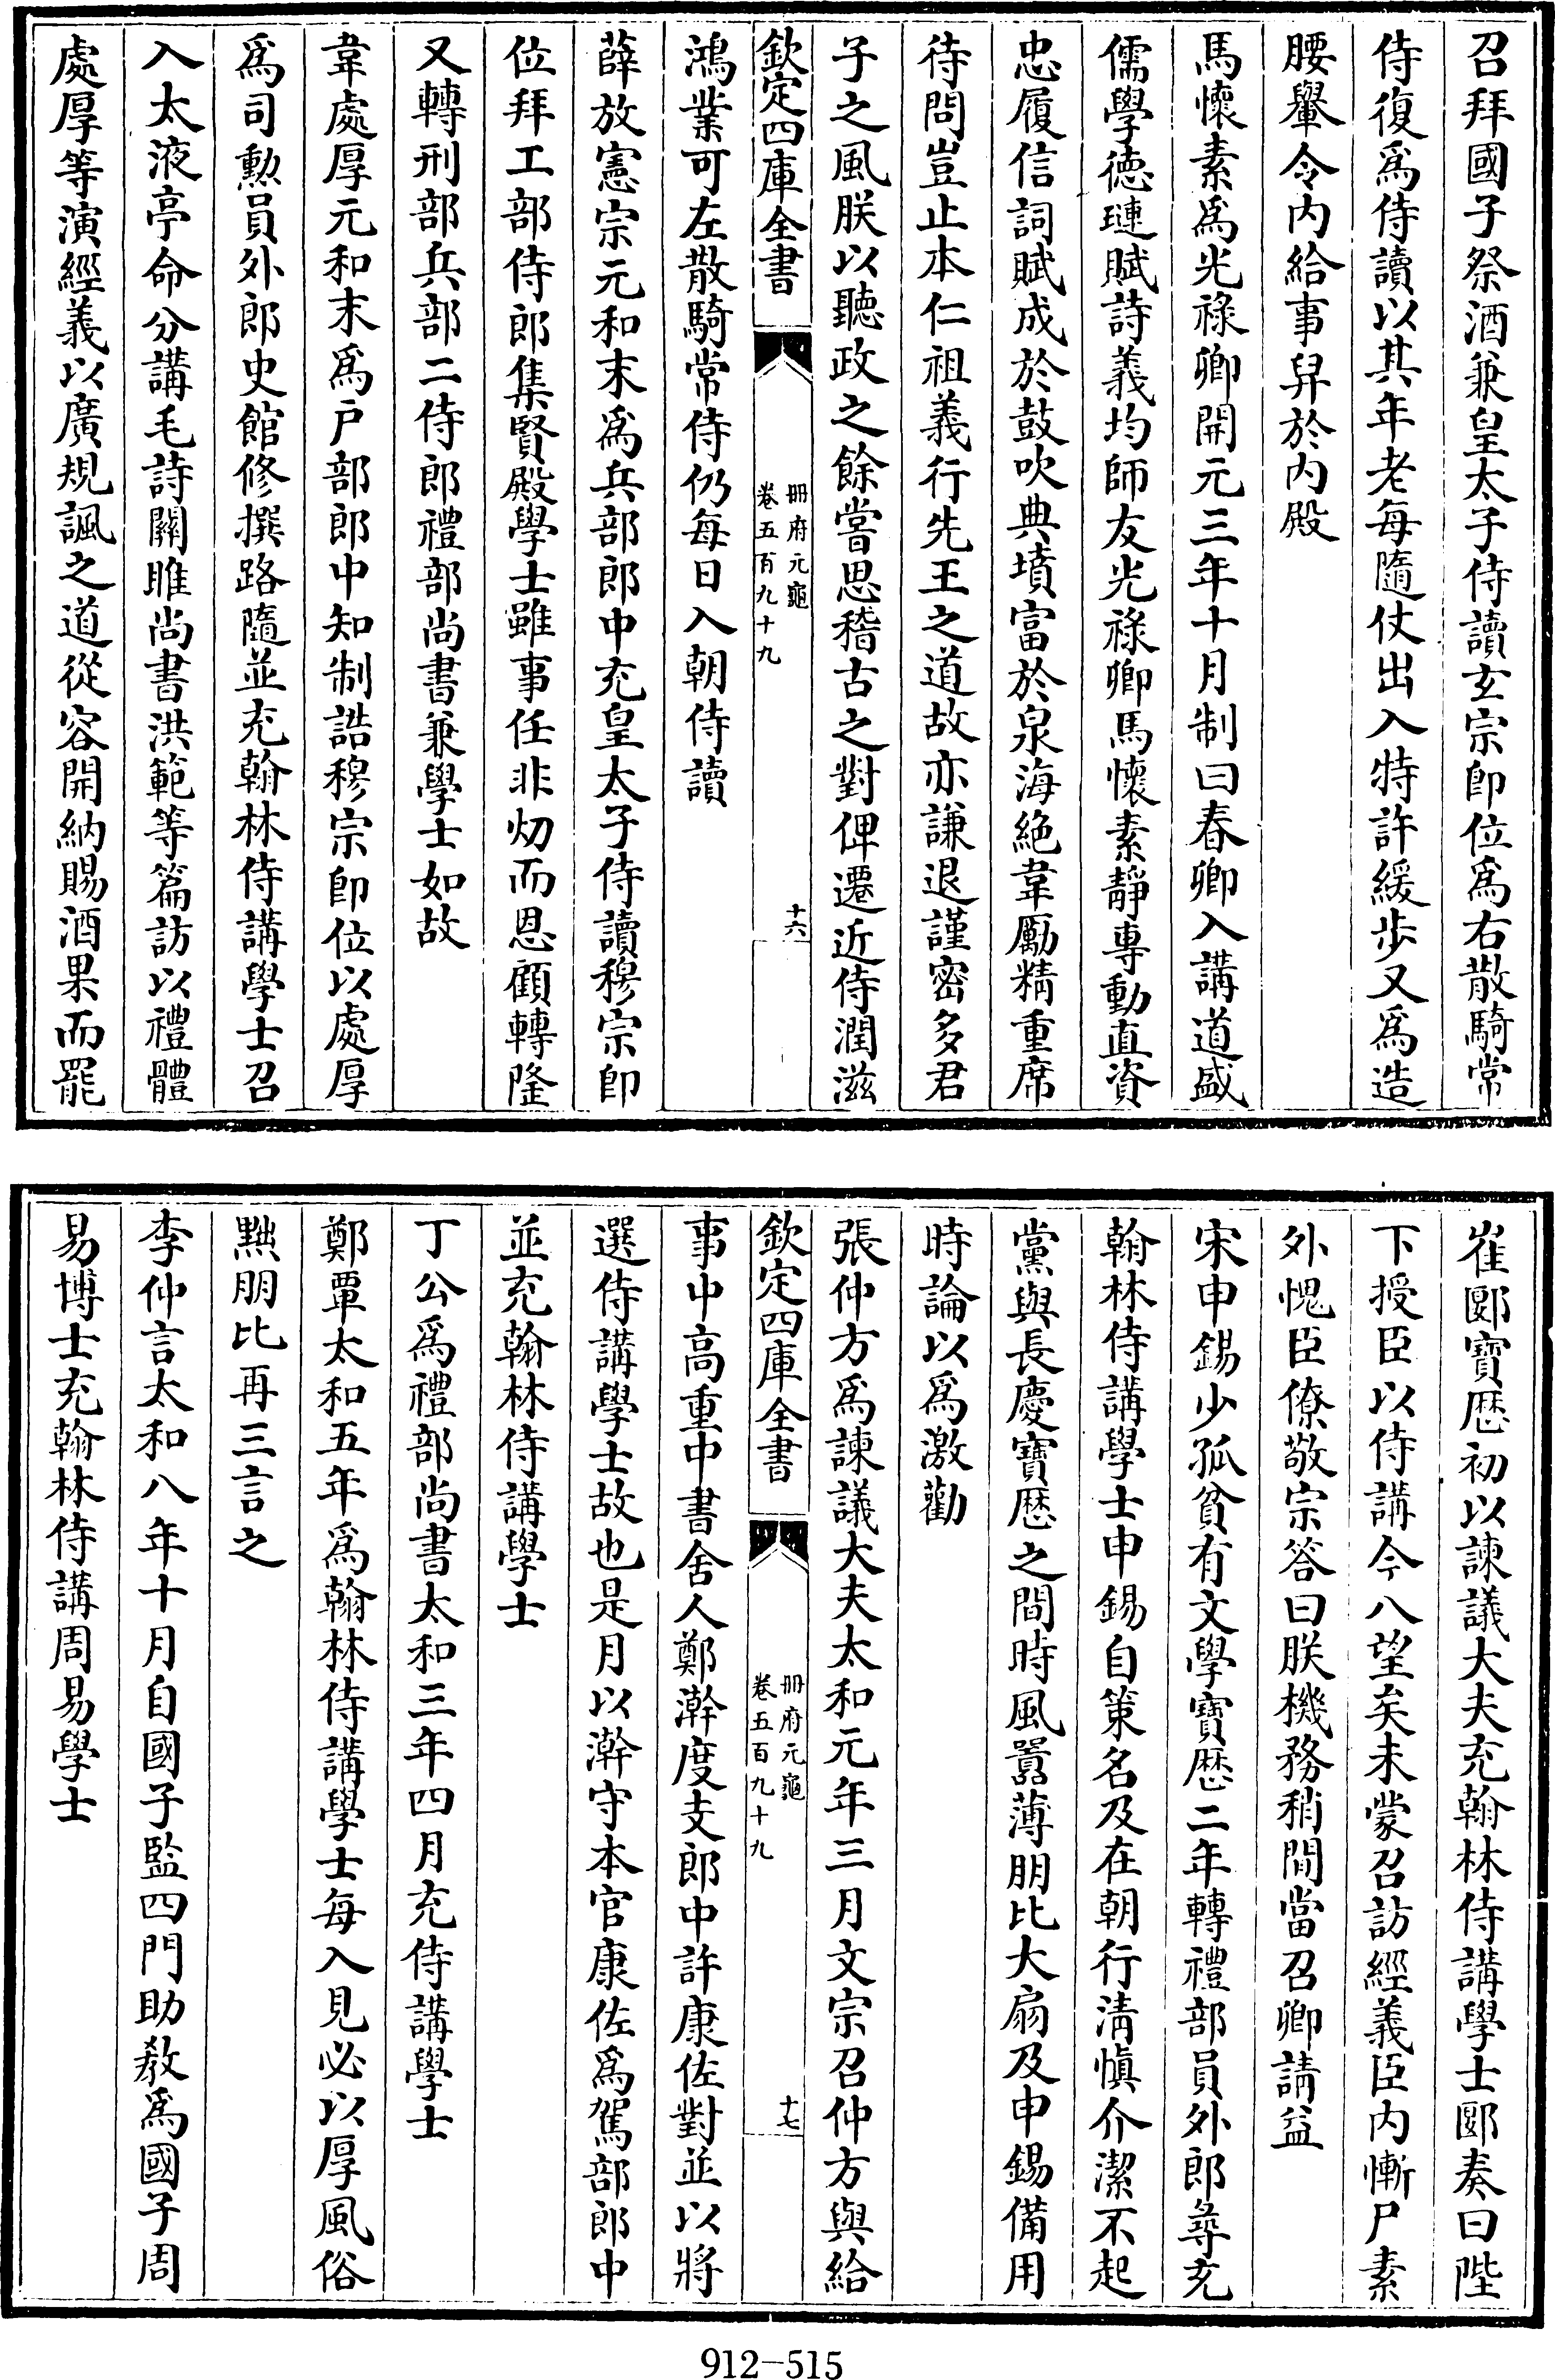 召拜國子祭酒兼皇太子侍讀玄宗卽位爲右散騎常
侍復爲侍讀以其年老每隨仗出入特許緩步又爲造
腰轝令內給事舁於內殿
馬懷素爲光祿卿開元三年十月制曰春卿入講道盛
儒學德璉賦詩義均師友光祿卿馬懷素靜專動直資
忠履信詞賦成於鼓吹典墳富於泉海絶韋勵精重席
待問豈止本仁祖義行先王之道故亦謙退謹密多君
子之風朕以聽政之餘嘗思稽古之對俾遷近侍潤滋
欽定四庫全書
冊府元龜
卷五百九十九
十六
鴻業可左散騎常侍仍每日入朝侍讀
薛放憲宗元和末爲兵部郎中充皇太子侍讀穆宗卽
位拜工部侍郎集賢殿學士雖事任非㓜而恩顧轉隆
又轉刑部兵部二侍郎禮部尚書兼學士如故
韋處厚元和末爲戶部郎中知制誥穆宗卽位以處厚
爲司勲員外郎史館修撰路隨並充翰林侍講學士召
入太液亭命分講毛詩關雎尚書洪範等篇訪以禮體
處厚等演經義以廣規諷之道從容開納賜酒果而罷
崔郾寶厯初以諫議大夫充翰林侍講學士郾奏曰陛
下授臣以侍講今八望矣未蒙召訪經義臣內慚尸素
外愧臣僚敬宗答曰朕機務稍間當召卿請益
宋申錫少孤貧有文學寶厯二年轉禮部員外郎尋充
翰林侍講學士申錫自策名及在朝行淸愼介潔不起
黨與長慶寶厯之間時風囂薄朋比大扇及申錫備用
時論以爲激勸
張仲方爲諫議大夫太和元年三月文宗召仲方與給
欽定四庫全書
冊府元龜
卷五百九十九
十七
事中高重中書舍人鄭澣度支郎中許康佐對並以將
選侍講學士故也是月以澣守本官康佐爲駕部郎中
並充翰林侍講學士
丁公爲禮部尚書太和三年四月充侍講學士
鄭覃太和五年爲翰林侍講學士每入見必以厚風俗
黜朋比再三言之
李仲言太和八年十月自國子監四門助教爲國子周
易博士充翰林侍講周易學士
912-515